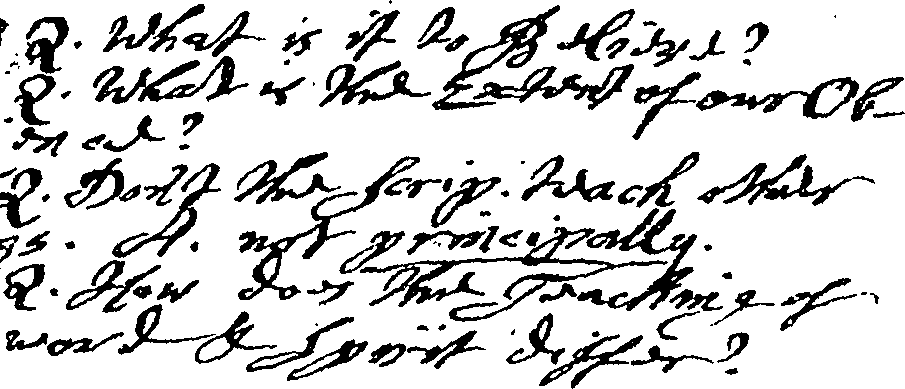 Q. What is it to Believe?
Q. What is the Extent of our Ob-
ience?
Q. Don't the scrip. teach other
gs. A. not principally.
Q. How does the Teaching of
word & Spirit differ?